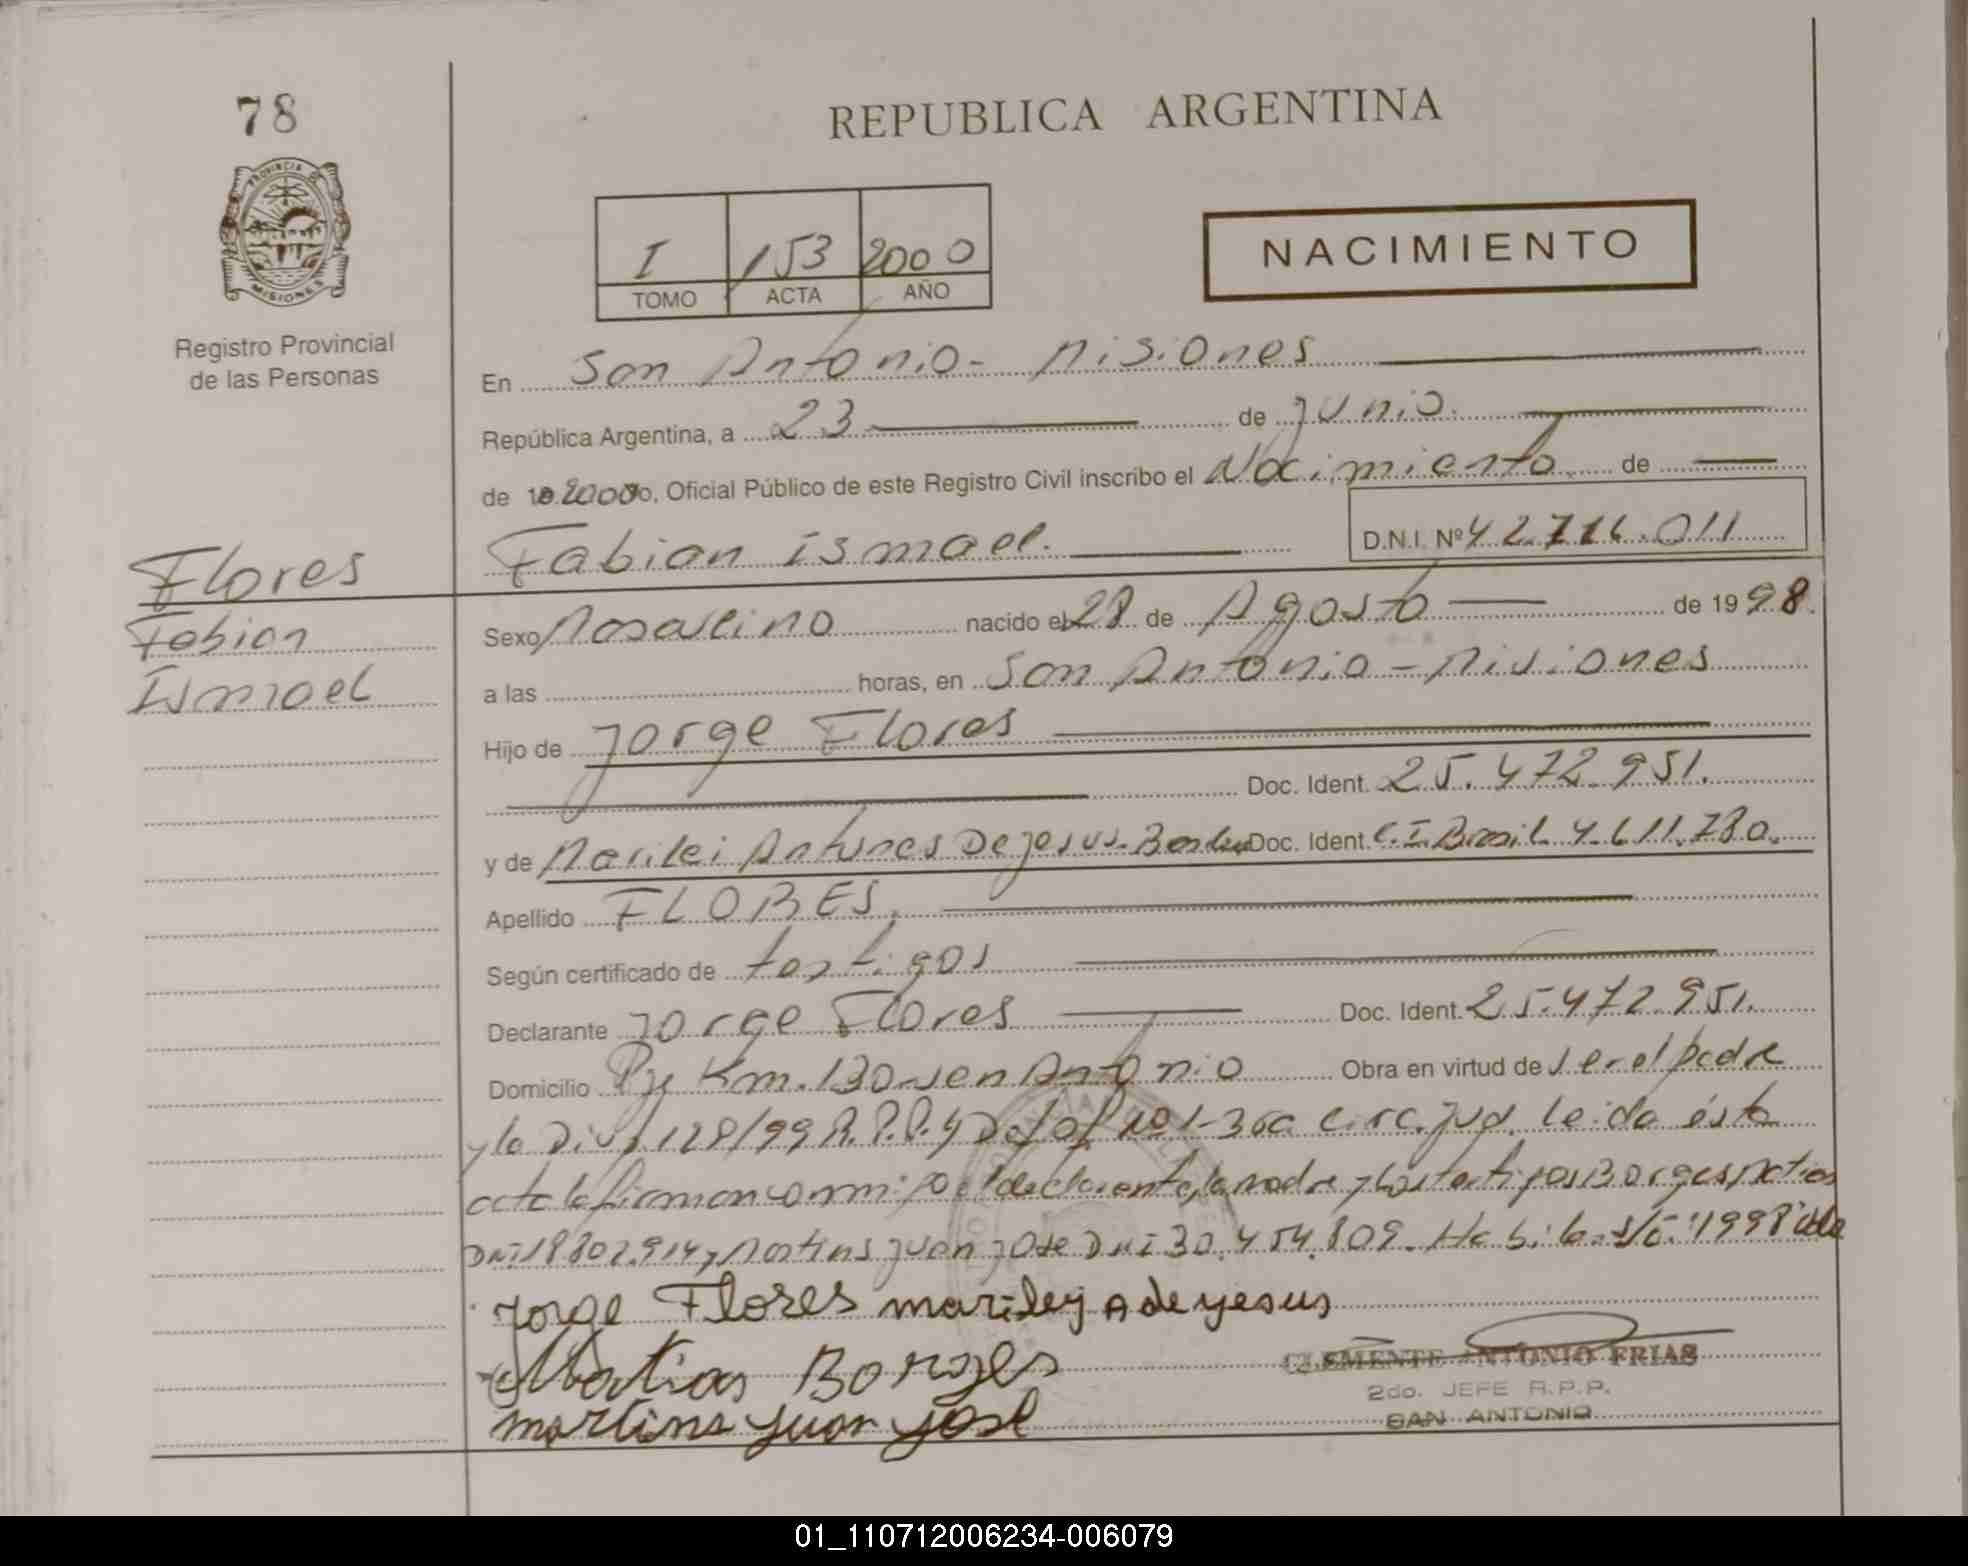 78
REPUBLICA ARGENTINA
PROVINCIA DE
MISIONES
Registro Provincial
de las Personas
I 153 2000
TOMO ACTA AÑO
NACIMIENTO
En San Antonio - Misiones
República Argentina, a 23 de junio.
de 2000, Oficial Público de este Registro Civil inscribo el Nacimiento de
Fabian Ismael.
D.N.I. Nº 42.716.011
Flores
Fabian
Ismael
Sexo Masculino nacido el 28 de Agosto de 1998.
a las horas, en San Antonio - Misiones
Hijo de Jorge Flores
Doc. Ident. 25.472.951.
y de Marilei Antunes De jesus - Doc. Ident. C.I. Brasil 4.611.780.
Apellido FLORES.
Según certificado de testigos
Declarante Jorge Flores Doc. Ident. 25.472.951.
Domicilio Pje Km. 130 - san Antonio Obra en virtud de ser el padre
y la Disp. 128/99 R.P.P. y Def of no 1 - 3ra circ. jud. leida ésta
acta la firman conmigo el declarante, la madre y los testigos Borges Matias
DNI 18.802.914 y Martins juan jose DNI 30.454.809. "1998"
Jorge Flores mariley A de yesus
Matias Borges
martins juan jose
CLEMENTE ANTONIO FRIAS
2do. JEFE R.P.P.
SAN ANTONIO
01_110712006234-006079